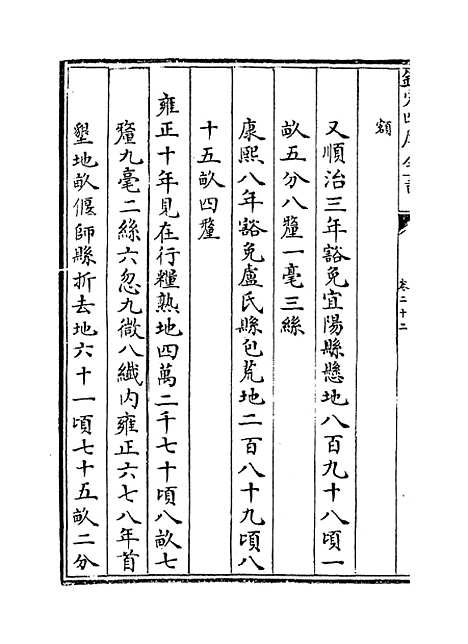 欽定四庫全書
卷二十二
額
又順治三年豁免宜陽縣懸地八百九十八頃一
畝五分八釐一毫三絲
康熙八年豁免盧氏縣包荒地二百八十九頃八
十五畝四釐
雍正十年見在行糧熟地四萬二千七十頃八畝七
釐九毫二絲六忽九微八纖內雍正六七八年首
墾地畝偃師縣折去地六十一頃七十五畝二分